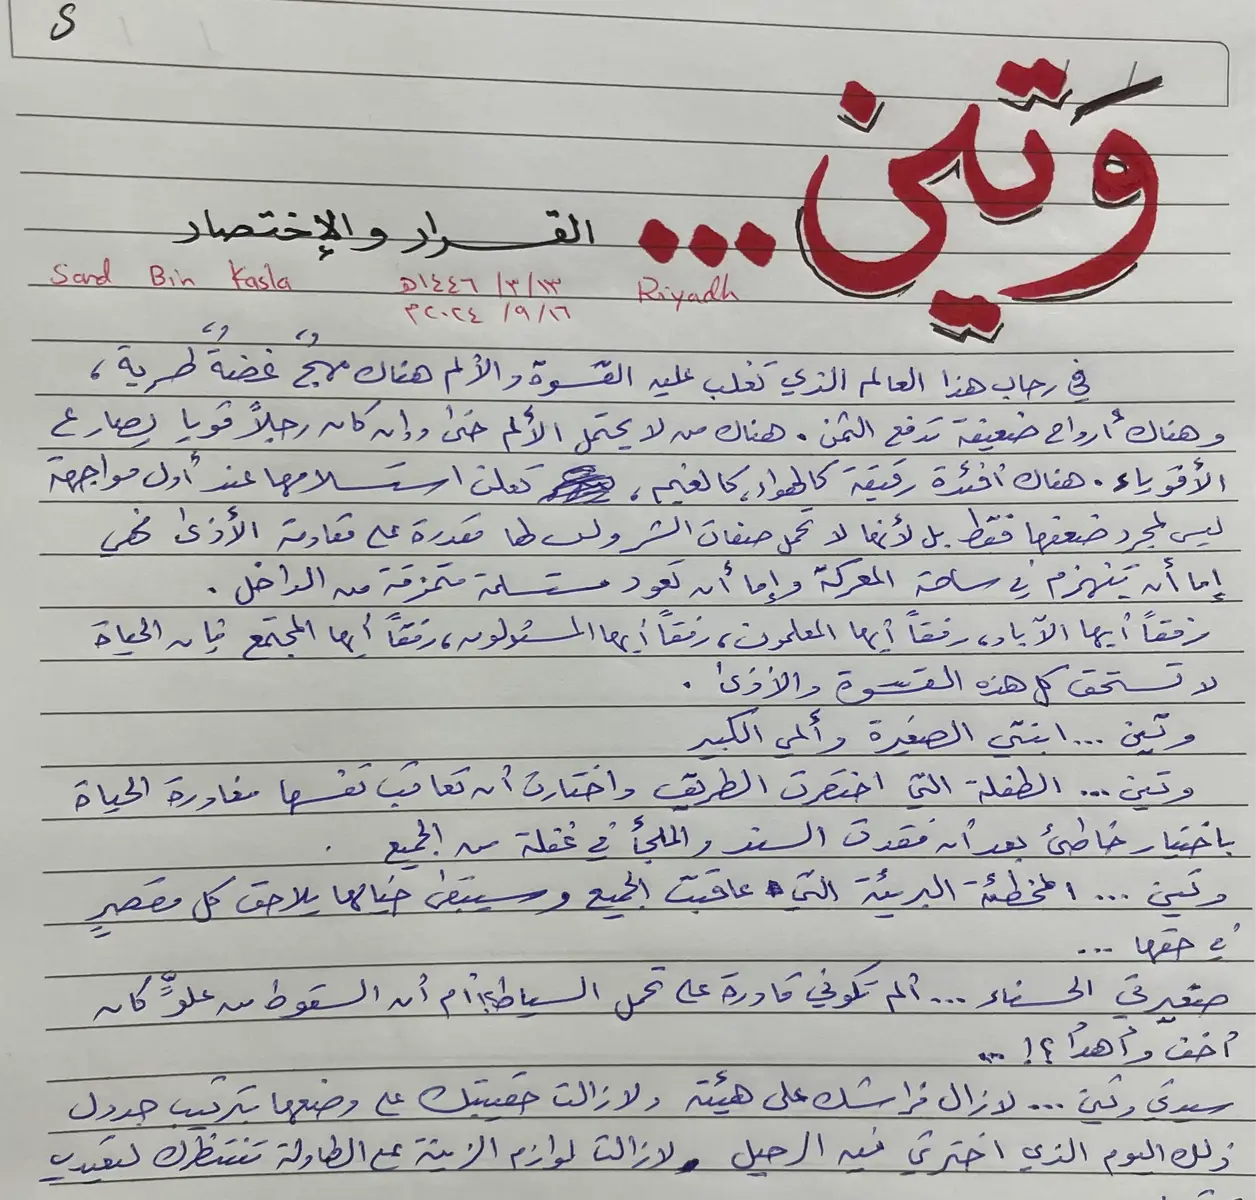 S
وَتين...
القرار والإختصار
Sand Bin Kasla
١٤٤٦/٣/١٣هـ
Riyadh
٢٠٢٤/٩/١٦م
في رحاب هذا العالم الذي تغلب عليه القسوة والألم هناك مهجٌ غضةٌ طرية،
وهناك أرواح ضعيفة تدفع الثمن. هناك من لا يحتمل الألم حتى وإن كان رجلاً قويا يصارع
الأقوياء. هناك أفئدة رقيقة كالهواء، كالغيم، تعلن استسلامها عند أول مواجهة
ليس لمجرد ضعفها فقط بل لأنها لا تحمل صفات الشر وليس لها مقدرة على مقاومة الأذى فهي
إما أن تنهزم في ساحة المعركة وإما أن تعود مستسلمة متمزقة من الداخل.
رفقاً أيها الآباء، رفقاً أيها المعلمون، رفقاً أيها المسئولون، رفقاً أيها المجتمع فإن الحياة
لا تستحق كل هذه القسوة والأذى.
وتين... ابنتي الصغيرة وألمي الكبير
وتين... الطفلة التي اختصرت الطريق واختارت أن تعاقب نفسها مغادرة الحياة
باختيار خاطئ بعد أن فقدت السند والملجأ في غفلة من الجميع.
وتين... المخطئة البريئة التي عاقبت الجميع وسيبقى خيالها يلاحق كل مقصرٍ
في حقها...
صغيرتي الحسناء... ألم تكوني قادرة على تحمل السياط؟! أم أن السقوط من علوٍّ كان
أخف وأهدأ؟!...
سيدتي وتين... لازال فراشك على هيئته ولازالت حقيبتك على وضعها بترتيب جدول
ذلك اليوم الذي اخترتي فيه الرحيل. لازالت لوازم الزينة على الطاولة تنتظرك